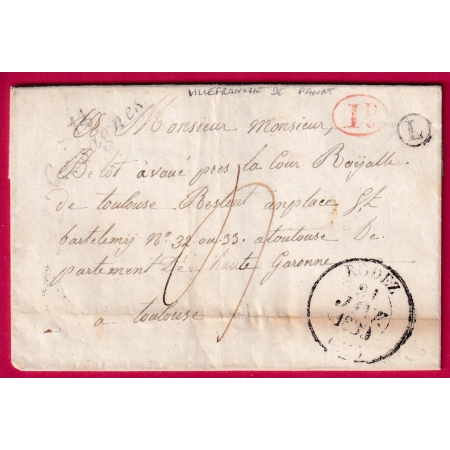 VILLEFRANCHE DE PANAT
1D
L
A Monsieur Monsieur,
Belot àvoué pres la Cour Royalle
de toulouse Restent anplace St
bartelemy N° 32 ou 33. atoulouse De
partement De haute Garonne
a toulouse
RODEZ
21